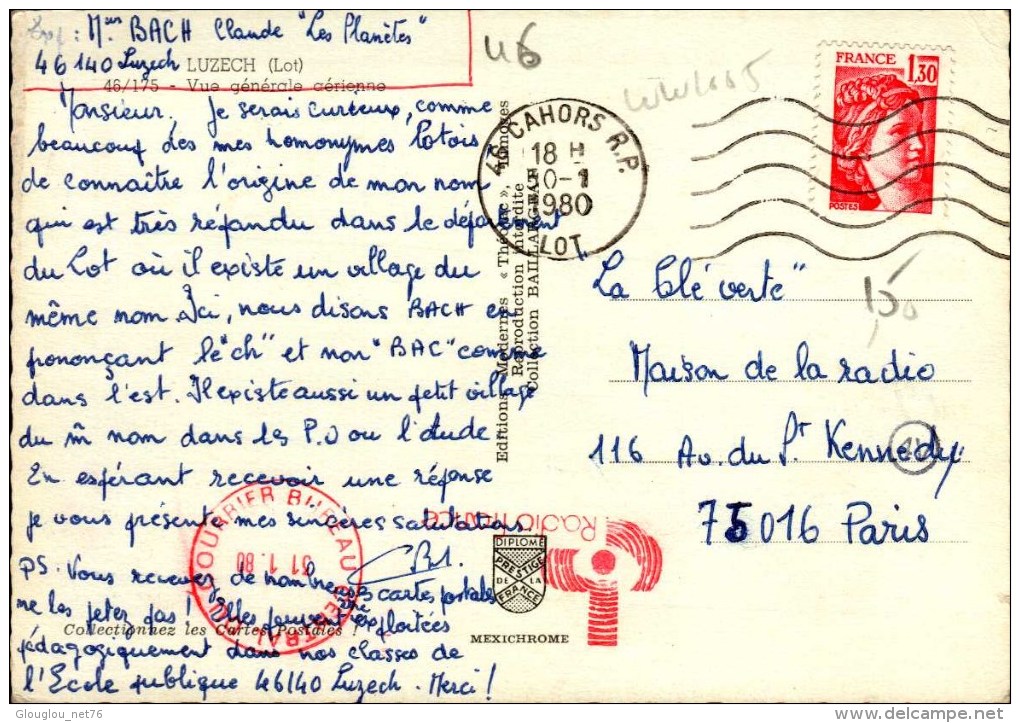 Exp: Mr BACH Claude "Les Planètes"
46140 Luzech
LUZECH (Lot)
46/175 - Vue générale aérienne
Monsieur. Je serais curieux, comme
beaucoup des mes homonymes lotois
de connaître l'origine de mon nom
qui est très répandu dans le département
du Lot où il existe un village du
même nom. Ici, nous disons BACH en
prononçant le "ch" et non "BAC" comme
dans l'est. Il existe aussi un petit village
du m̂ nom dans les P.O ou l'Aude
En espérant recevoir une réponse
je vous présente mes sincères salutations
PS. Vous recevez de nombreuses cartes postales
ne les jetez pas ! Elles peuvent être exploitées
pédagogiquement dans nos classes de
l'Ecole publique 46140 Luzech. Merci !
Collectionnez les Cartes Postales !
COURRIER BUREAU CENTRAL
31. 1. 80
Editions Modernes « Théojac », Limoges
Reproduction interdite
Collection BAILLARGEAU
46 CAHORS R.P.
18 H
30-1
1980
LOT
46
FRANCE
1,30
POSTES
"La clé verte"
Maison de la radio
116 Av. du Pt Kennedy
75016 Paris
Radio France
DIPLOME
PRESTIGE
DE LA
FRANCE
MEXICHROME
Glouglou_net76
delcampe.net